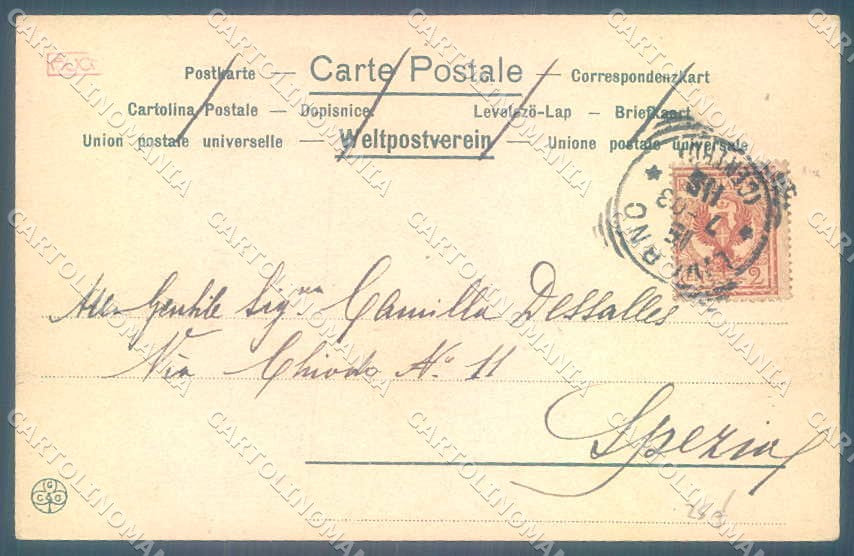 Postkarte — Carte Postale — Correspondenzkart
Cartolina Postale — Dopisnice. Levelező-Lap — Briefkaart
Union postale universelle — Weltpostverein — Unione postale universale
LIVORNO
2
Gentile Sigra Camilla Dessalles
Via Chiodo No 11
Spezia
CARTOLINOMANIA